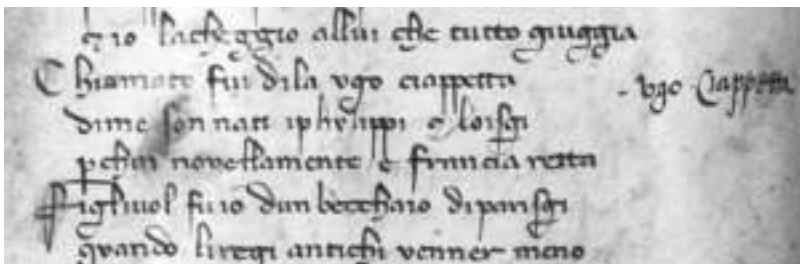 ⁊ io lacheggio allui che tutto giuggia
Chiamato fui dila ugo ciappetta
- Ugo Ciappetta
dime son nati iphylippi ⁊ loisgi
p chui novellamente e francia retta
Figliuol fu io dun beccharo diparisgi
quando liregi antichi venner meno